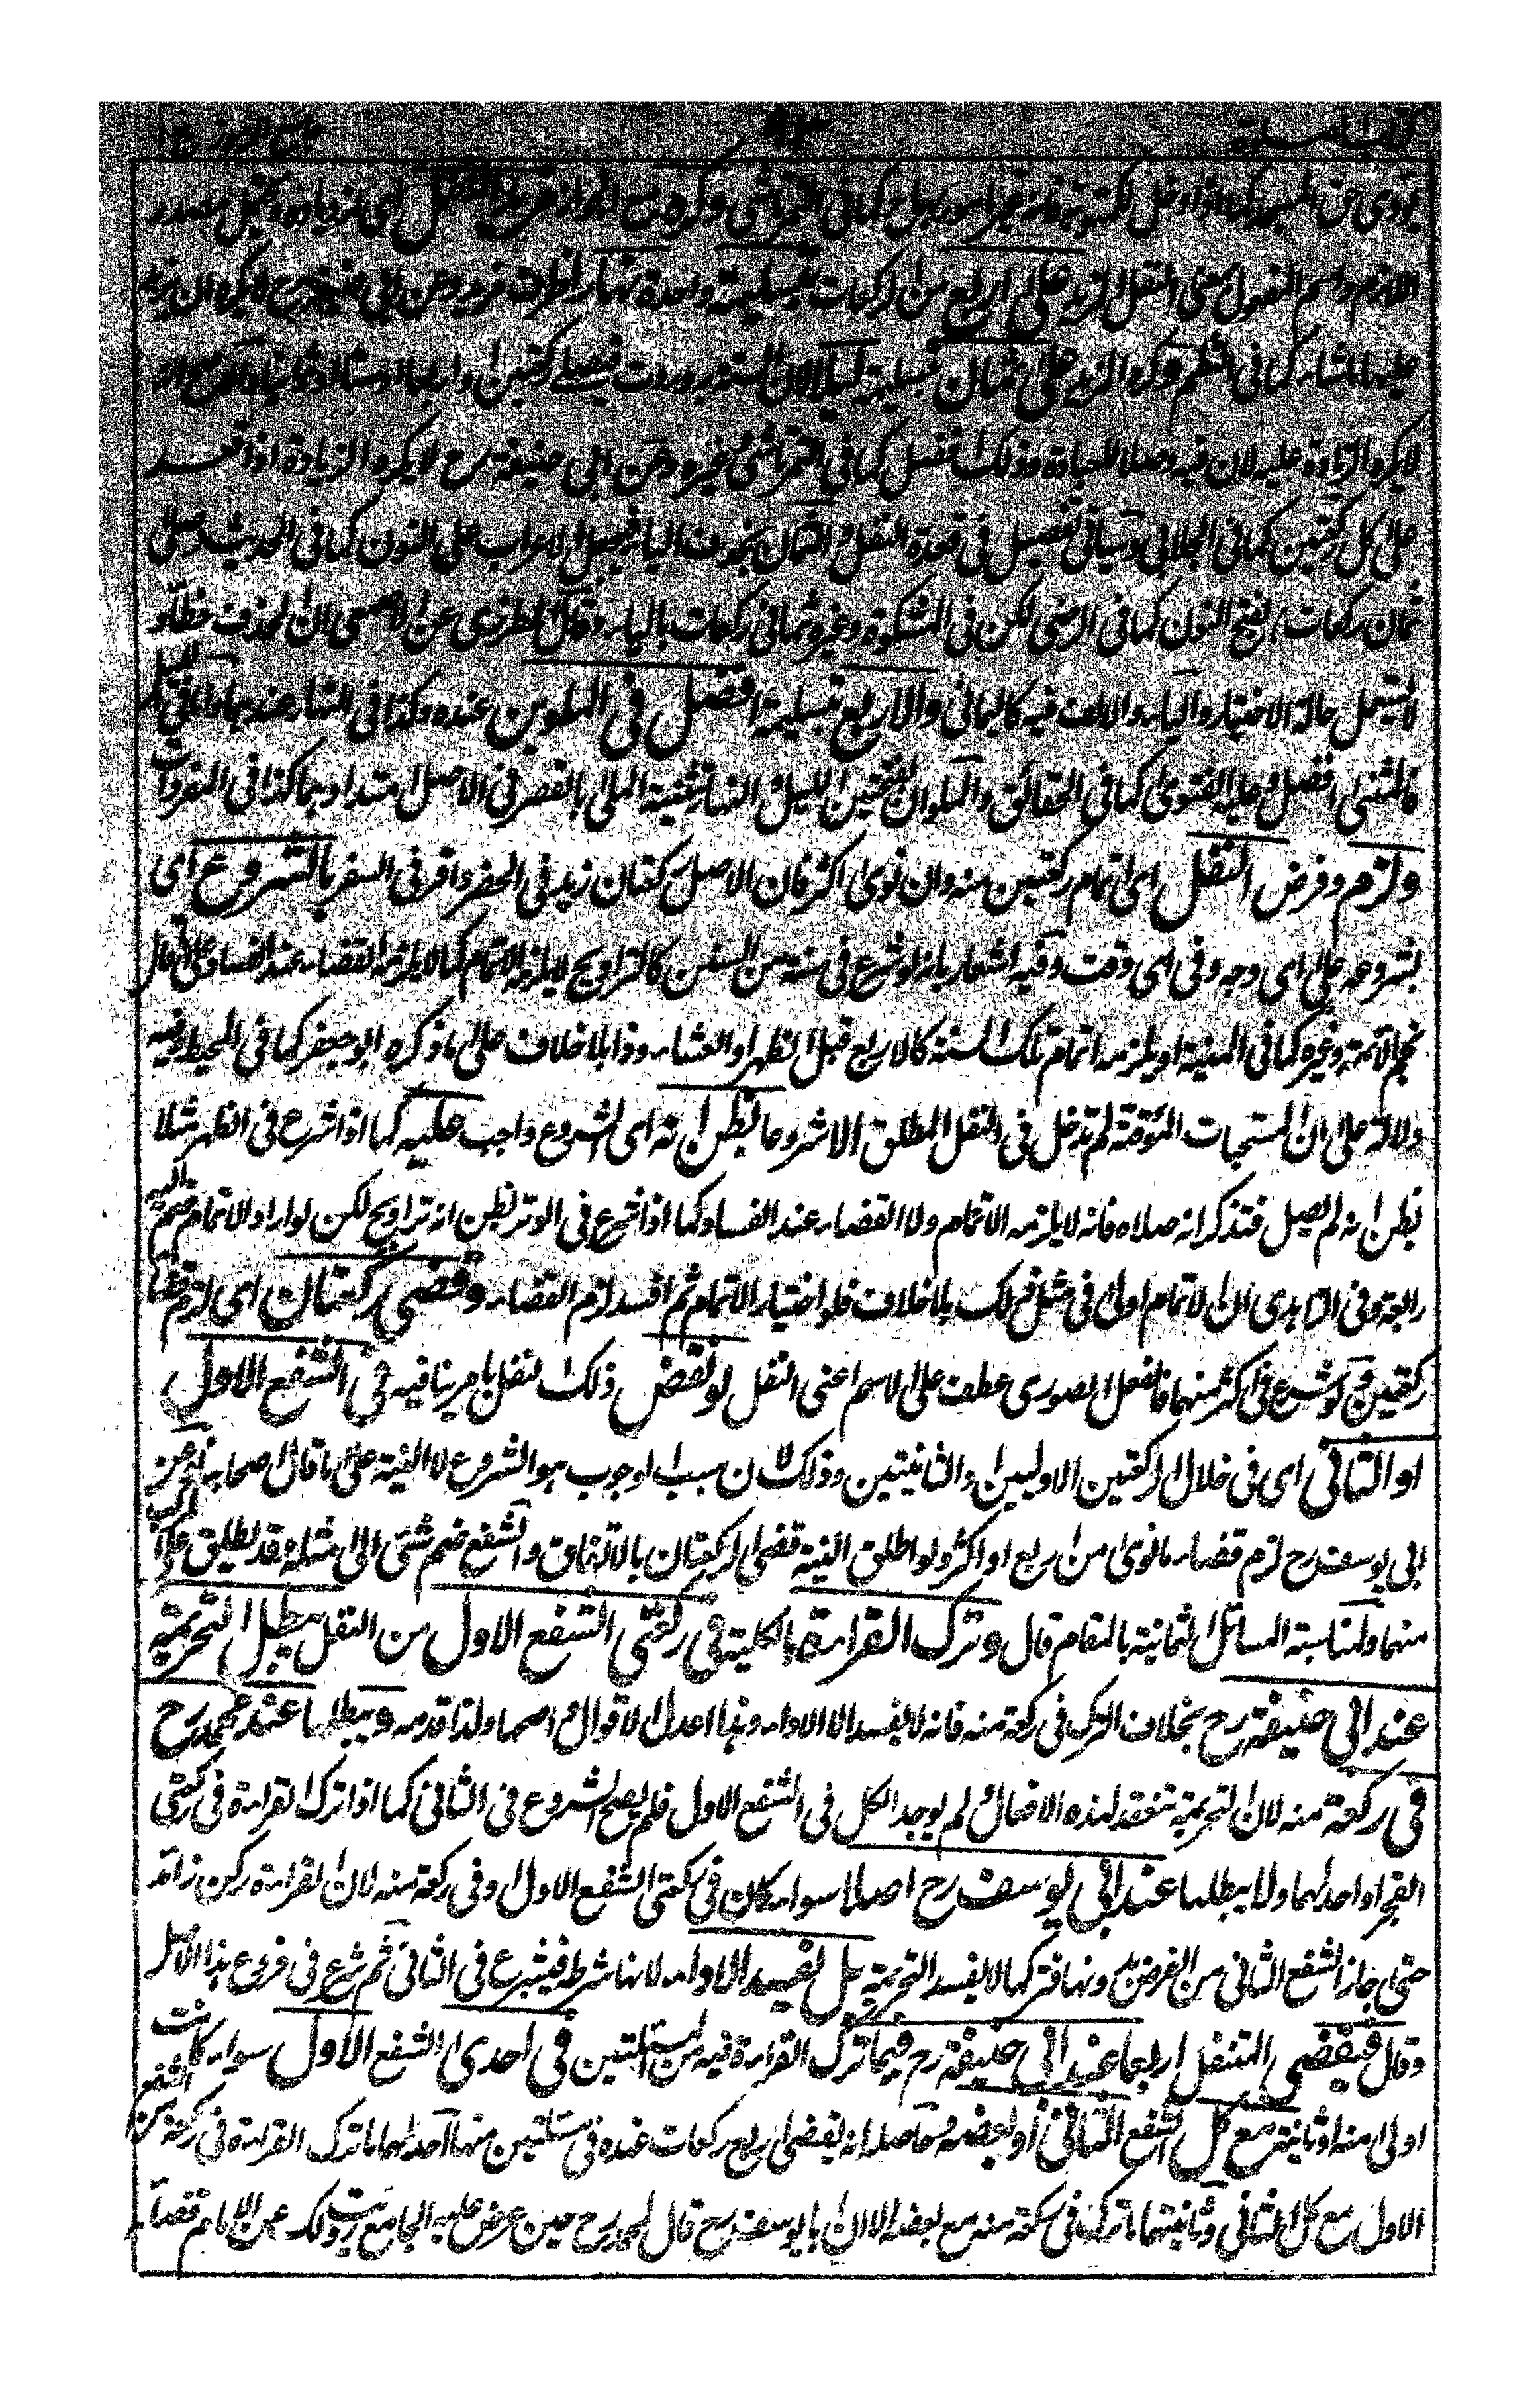 كتاب الصلوة ٩٣ جامع الرموز ١٥
يؤدى حق المسجد كما اذا دخل لمكتوبة فانه غير مامور بها ح كما فى التمرتاشى وكره مزيد النفل اى زيادة مصدر
اللازم واسم المفعول بمعنى النفل المزيد على اربع من الركعات بتسليمة واحدة نهارا ظرف مزيد وعن ابى حنيفة رح لا يكره ان يزيد
عليها ما شاء كما فى النظم وكره المزيد على ثمان بتسليمة ليلا لان السنة وردت بفصل ركعتين او اربعا او ستا او ثمانيا والاصح انه
لا يكره الزيادة عليه لان فيه وصلا للعبادة وذلك افضل كما فى التمرتاشى وغيره وعن ابى حنيفة رح لا يكره الزيادة اذا قعد
على كل ركعتين كما فى الجلابى وسياتى تفصيل فى قعدة النفل والثمان بحذف الياء فيجعل الاعراب على النون كما فى الحديث وصلى
ثمان ركعات بفتح النون كما فى الرضى لكن فى المشكوة وغيره ثمانى ركعات بالياء وقال المطرزى عن الاصمعى ان الحذف خطأ و
لا يستعمل حالة الاختيار والياء والالف فيه كاليمانى والاربع بتسليمة افضل فى الملوين عنده وكذا فى النهار عندهما واما فى الليل
فالمثنى افضل وعليه الفتوى كما فى الحقائق والملوان بفتحتين الليل والنهار تثنية الملى بالقصر فى الاصل امتدادهما كذا فى المفردات
ولزم وفرض النفل اى اتمام ركعتين منه وان نوى اكثر فان الاصل ركعتان زيد فى الحضر واقر فى السفر بالشروع اى
بشروعه على اى وجه وفى اى وقت وفيه اشعار بانه لو شرع فى سنة من السنن كالتراويح لا يلزمه الاتمام كما لا يلزمه القضاء عند الفساد على ما قال
نجم الائمة وغيره كما فى المنية او يلزمه اتمام تلك السنة كالاربع قبل الظهر او العشاء وذا بلا خلاف على ما ذكره ابو جعفر كما فى المحيط وفيه
دلالة على ان المستحبات المؤقتة لم تدخل فى النفل المطلق الا شروعا بظن انه اى الشروع واجب عليه كما اذا شرع فى الظهر مثلا
بظن انه لم يصل فتذكر انه صلاه فانه لا يلزمه الاتمام ولا القضاء عند الفساد وكما اذا شرع فى الوتر بظن انه تراويح لكن لو اراد الاتمام ضم اليه
رابعة وفى الزاهدى ان الاتمام اولى فى مثل ذلك بلا خلاف فلو اختيار الاتمام ثم افسد لزم القضاء وقضى ركعتان اى لزم قضاء
ركعتين ولو شرع فى اكثر منهما فالفعل الصورى عطف على الاسم اعنى النفل لو نقض ذلك النفل بامر ينافيه فى الشفع الاول
او الثانى اى فى خلال الركعتين الاوليين او الثانيتين وذلك لان سبب الوجوب هو الشروع لا النية على ما قال اصحابنا وعن
ابى يوسف رح لزم قضاء ما نوى من اربع او اكثر ولو اطلق النية قضى الركعتان بالاتفاق والشفع ضم شئ الى مثله وقد يطلق على المركب
منهما ولمناسبة المسائل الثمانية بالمقام قال وترك القراءة بالكلية فى ركعتى الشفع الاول من النفل يبطل التحريمة
عند ابى حنيفة رح بخلاف الترك فى ركعة منه فانه لا يفسد الا الاداء وهذا اعدل الاقوال واصحها ولذا قدمه ويبطلها عند محمد رح
فى ركعة منه لان التحريمة تنعقد لهذه الافعال ولم يوجد الكل فى الشفع الاول فلم يصح الشروع فى الثانى كما اذا ترك القراءة فى ركعتى
الفجر او احدهما ولا يبطلها عند ابى يوسف رح اصلا سواء كان فى ركعتى الشفع الاول او فى ركعة منه لان القراءة ركن زائد
حتى جاز الشفع الثانى من الفرض بدونها فتركها لا يفسد التحريمة بل يفسد الاداء لانها شرط فيشرع فى الثانى ثم شرع فى فروع هذا الاصل
وقال فيقضى المتنفل اربعا عند ابى حنيفة رح فيما ترك القراءة فيه من المسئلتين فى احدى الشفع الاول سواء كانت
اولى منه او ثانيته مع كل الشفع الثانى او بعضه وحاصله انه يقضى اربع ركعات عنده فى مسئلتين منها احدهما ما ترك القراءة فى ركعة من الشفع
الاول مع كل الثانى وثانيتهما ما ترك فى ركعة منه مع بعضه الا ان ابا يوسف رح قال لمحمد رح حين عرض عليه الجامع رويت لك عن الامام قضاء